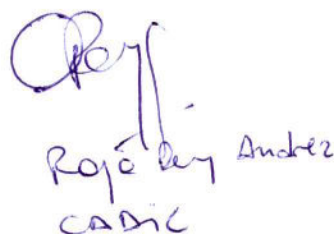 Rojo Rey Andrez
CADIC